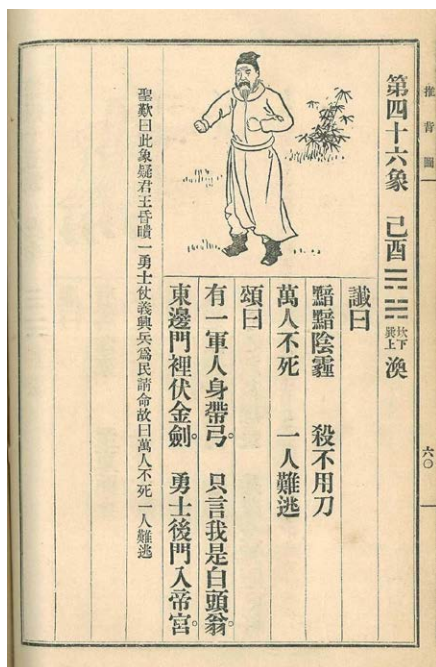 推背圖
六〇
第四十六象 己酉 坎下 巽上 渙
讖曰
黯黯陰霾 殺不用刀
萬人不死 一人難逃
頌曰
有一軍人身帶弓。 只言我是白頭翁。
東邊門裡伏金劍。 勇士後門入帝宮。
聖歎曰此象疑君王昏瞶一勇士仗義興兵為民請命故曰萬人不死一人難逃